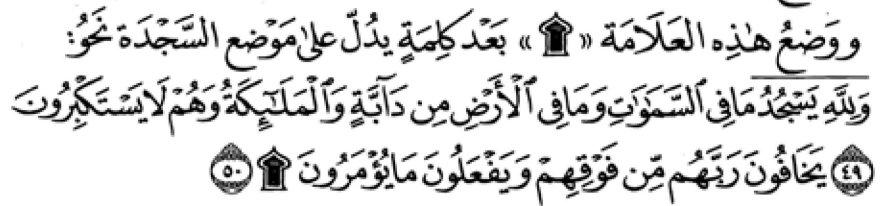 ووَضعُ هٰذِهِ العَلَامَة «۩» بَعْد كلِمَةٍ يدُلّ علىٰ مَوْضع السَّجْدَة نَحْوُ:
وَلِلَّهِ يَسْجُدُ مَا فِي السَّمَٰوَٰتِ وَمَا فِي ٱلْأَرْضِ مِن دَآبَّةٍ وَٱلْمَلَٰٓئِكَةُ وَهُمْ لَا يَسْتَكْبِرُونَ
﴿٤٩﴾ يَخَافُونَ رَبَّهُم مِّن فَوْقِهِمْ وَيَفْعَلُونَ مَا يُؤْمَرُونَ ۩ ﴿٥٠﴾